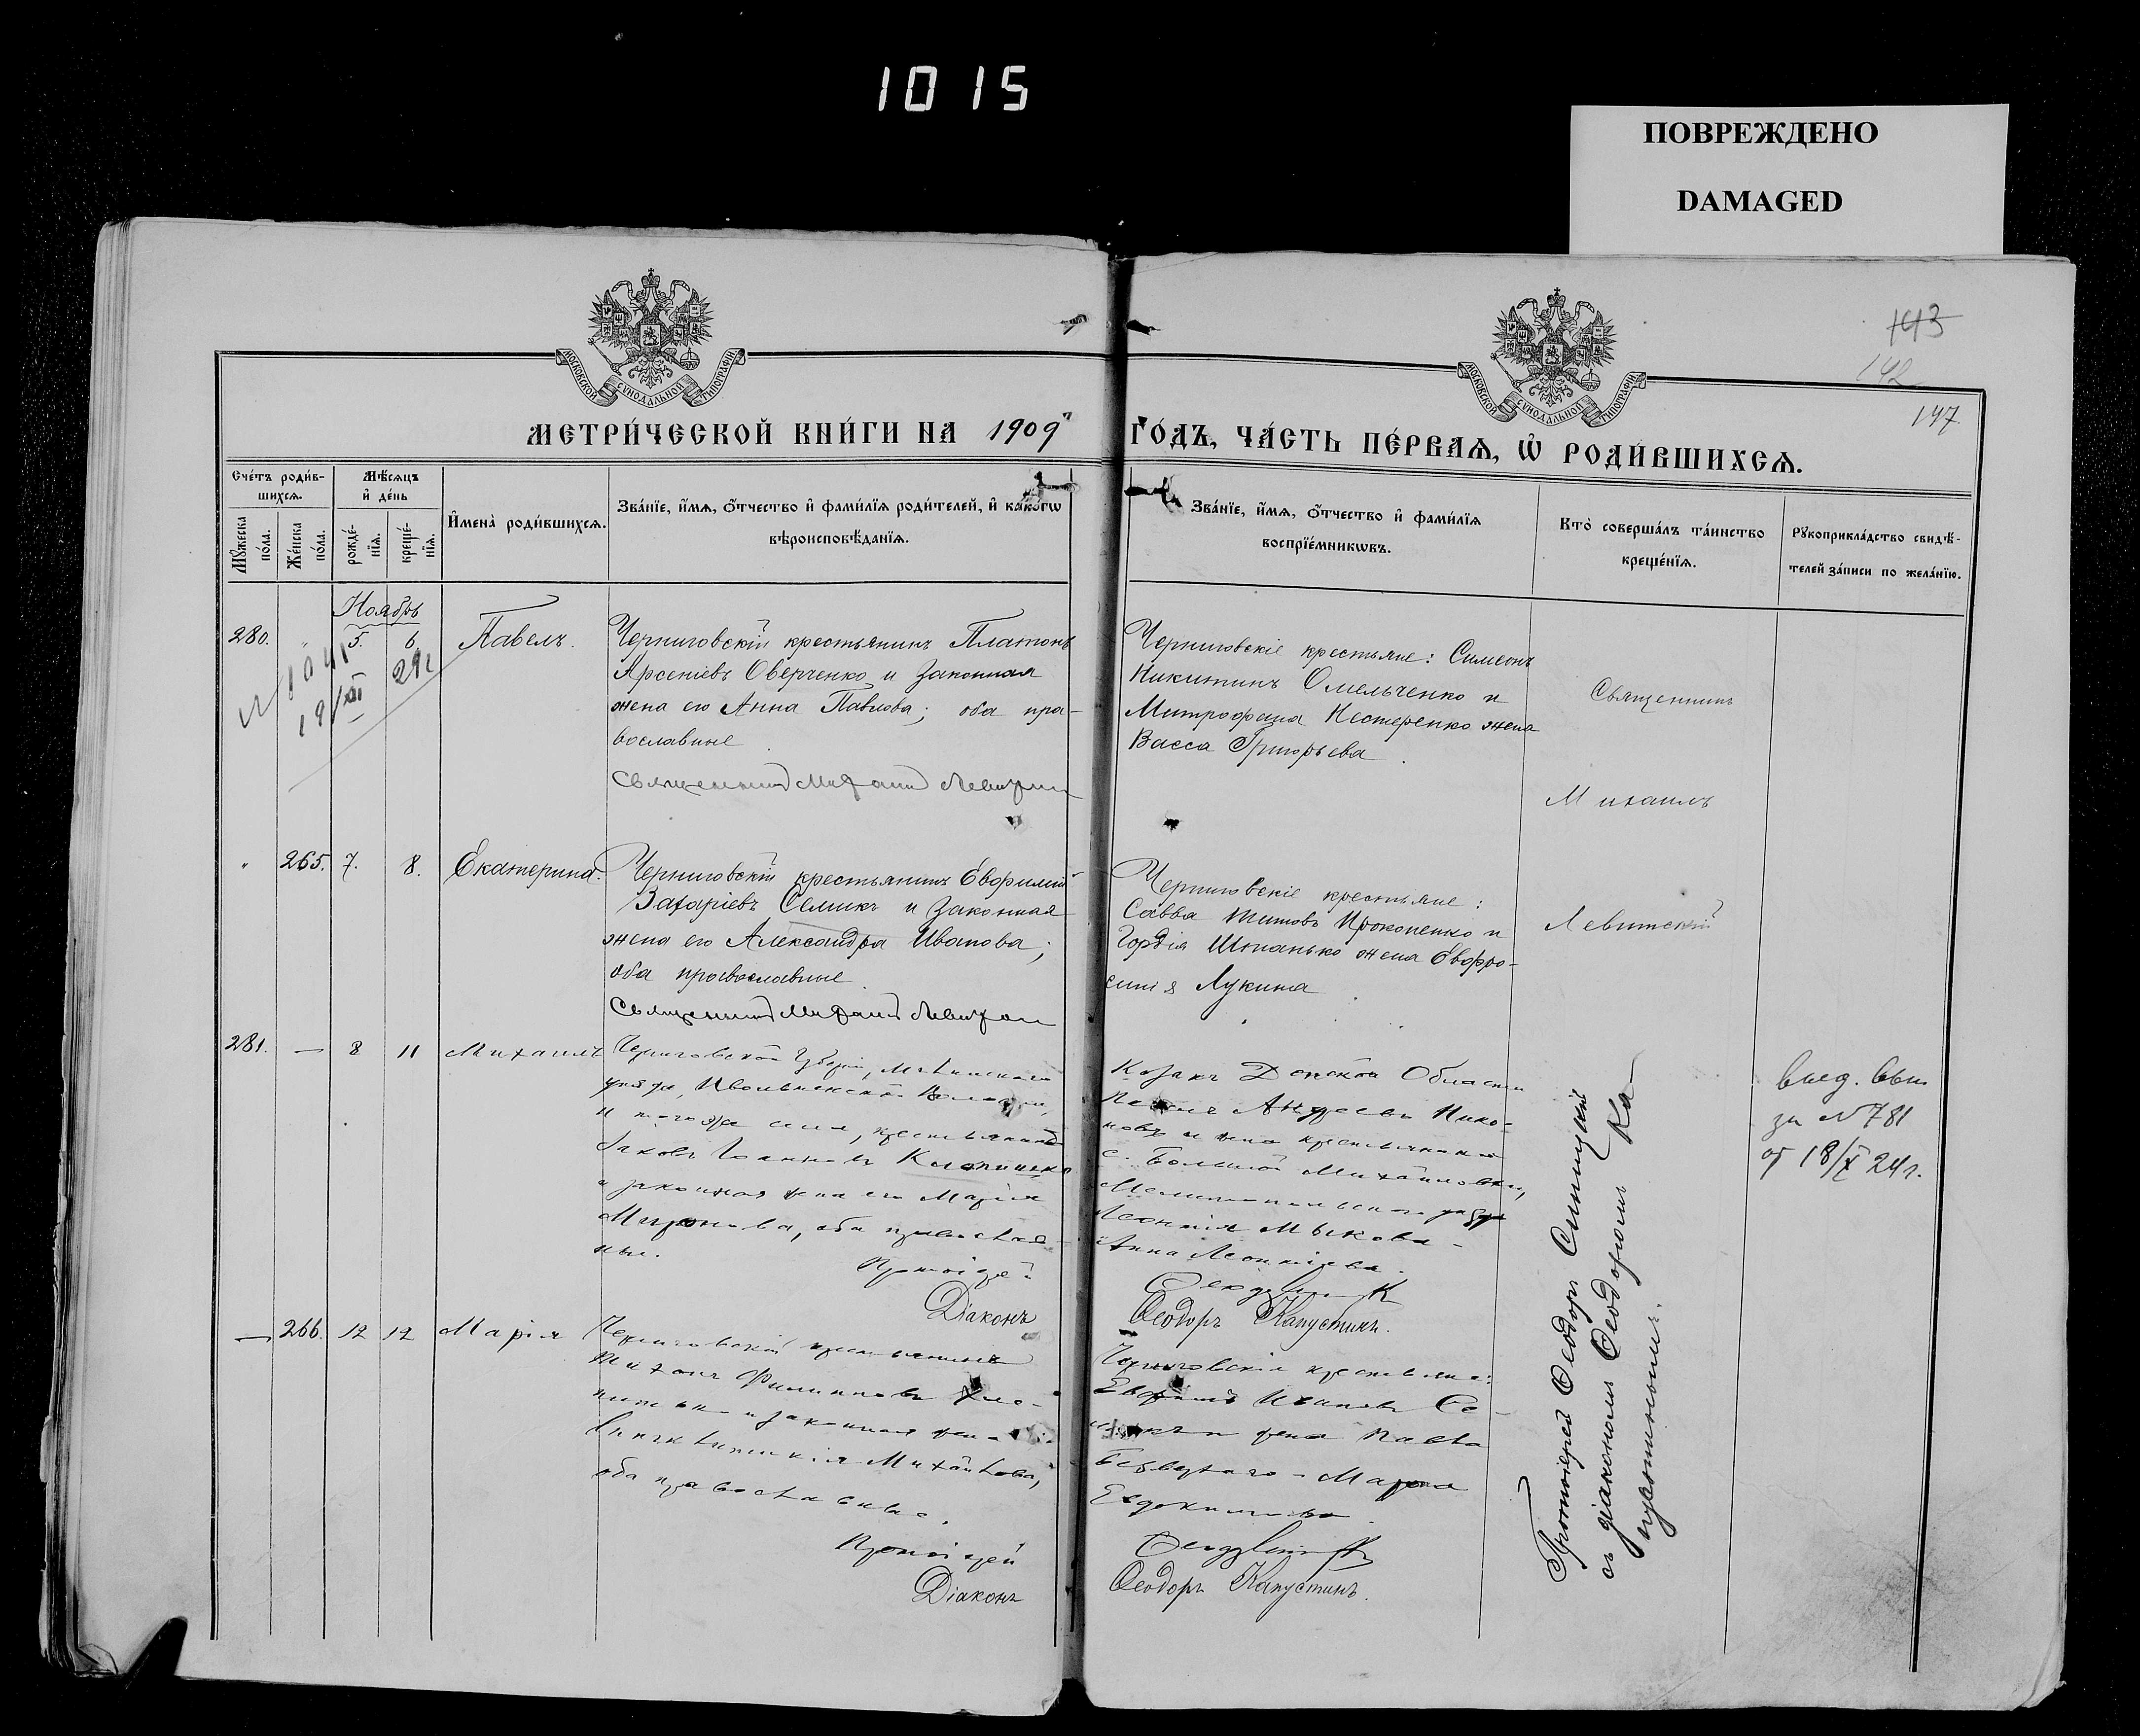 1015
ПОВРЕЖДЕНО
DAMAGED
МОСКОВСКОЙ СУНОДАЛЬНОЙ ТИПОГРАФІИ
МОСКОВСКОЙ СУНОДАЛЬНОЙ ТИПОГРАФІИ
143
142
147
МЕТРИ́ЧЕСКОЙ КНИ́ГИ НА 1909 ГО́ДЪ, ЧА́СТЬ ПЕ́РВАѦ, Ѡ҆ РОДИ́ВШИХСѦ.
Сче́тъ роди́в-
шихсѧ.
Мꙋжеска по́ла.
Же́нска по́ла.
Мѣ́сѧцъ
и҆ де́нь
рожде́-
нїѧ.
креще́-
нїѧ.
И҆мена̀ роди́вшихсѧ.
Зва́нїе, и҆́мѧ, ѻ҆́тчество и҆ фами́лїѧ роди́телей, и҆ како́гѡ
вѣроисповѣ́данїѧ.
Зва́нїе, и҆́мѧ, ѻ҆́тчество и҆ фами́лїѧ
воспрїе́мникѡвъ.
Кто̀ соверша́лъ та́инство
креще́нїѧ.
Рꙋкоприкла́дство свидѣ́-
телей за́писи по жела́нїю.
Ноябрь
280. " 5. 6. Павелъ.
19/XII 29г
Черниговскій крестьянинъ Платонъ
Арсеніевъ Оверченко и законная
жена его Анна Павлова; оба пра-
вославные
Священникъ Михаилъ
Черниговскіе крестьяне: Симеонъ
Никитинъ Омельченко и
Митрофана Нестеренко жена
Васса Григорьева.
Священникъ
Михаилъ
Левитскій
" 265. 7. 8. Екатерина.
Черниговскій крестьянинъ Евфимій
Захаріевъ Семикъ и законная
жена его Александра Иванова;
оба православные.
Священникъ Михаилъ
Черниговскіе крестьяне:
Савва Титовъ Прокопенко и
Гордія Шпанько жена Евфро-
синія Лукина.
281. — 8 11 Михаилъ
Черниговской Губерніи,
уѣзда, Волости,
и того же села, крестьянинъ
Іаковъ Іоанновъ
и законная жена его Марія
Миронова, оба православ-
ные.
Протоіерей
Діаконъ
Козакъ Донской Области
Андреевъ Нико-
новъ и жена крестьянина
с. Большой Михайловки,
Мелитопольскаго уѣзда
Леонтія
Анна Леонтіева.
Ѳеодоръ Капустинъ.
Протоіерей Ѳеодоръ Синицкій
съ діакономъ Ѳеодоромъ Ка-
пустинымъ.
выд. вып.
за №781
от 18/X 24г.
— 266. 12 12 Марія
Черниговскій крестьянинъ
Тихонъ Филипповъ
и законная жена
Михайлова,
оба православные.
Протоіерей
Діаконъ
Черниговскіе крестьяне:
Евфимій Ивановъ Се-
микъ и жена Павла
Марѳа
Евдокимова.
Ѳеодоръ Капустинъ.